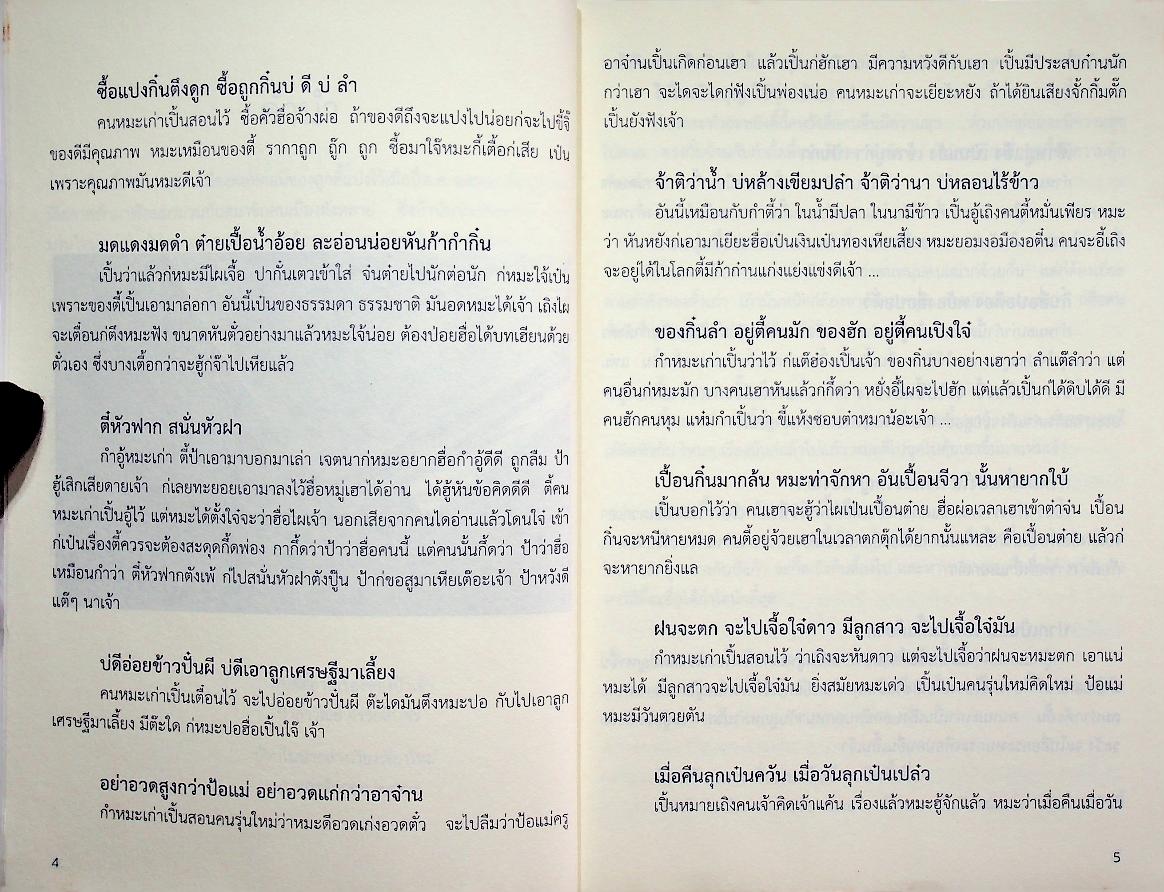 ซื้อแปงกิ๋นตึงดูก ซื้อถูกกิ๋นบ่ ดี บ่ ลำ
คนหมะเก่าเปิ้นสอนไว้ ซื้อคัวฮื่อจ้างผ่อ ถ้าของดีถึงจะแปงไปน่อยก่จะไปขี้จิ๊
ของดีมีคุณภาพ หมะเหมือนของตี้ ราคาถูก ถู๊ก ถูก ซื้อมาใจ๊หมะกี้เตื้อก่เสีย เป่น
เพราะคุณภาพมันหมะดีเจ้า
มดแดงมดดำ ต๋ายเปื้อน้ำอ้อย ละอ่อนน่อยหันก้ากำกิ๋น
เปิ้นว่าแล้วก่หมะมีไผเจื้อ ปากั๋นเตวเข้าใส่ จ๋นต่ายไปนักต่อนัก ก่หมะใจ้เป่น
เพราะของตี้เปิ้นเอามาล่อกา อันนี้เป่นของธรรมดา ธรรมชาติ มันอดหมะได้เจ้า เถิงไผ
จะเตื่อนก่ตึงหมะฟัง ขนาดหันตั๋วอย่างมาแล้วหมะใจ้น่อย ต้องป่อยฮื่อได้บทเฮียนด้วย
ตั๋วเอง ซึ่งบางเตื้อกว่าจะฮู้ก่จ๊าไปเหียแล้ว
ตี๋หัวฟาก สนั่นหัวฝา
กำอู้หมะเก่า ตี้ป้าเอามาบอกมาเล่า เจตนาก่หมะอยากฮื่อกำอู้ดีดี ถูกลืม ป้า
ฮู้เสิกเสียดายเจ้า ก่เลยทะยอยเอามาลงไว้ฮื่อหมู่เฮาได้อ่าน ได้ฮู้หันข้อคิดดีดี ตี้คน
หมะเก่าเปิ้นอู้ไว้ แต่หมะได้ตั้งใจ๋จะว่าฮื่อไผเจ้า นอกเสียจากคนใดอ่านแล้วโดนใจ๋ เข้า
ก่เป่นเรื่องตี้ควรจะต้องสะดุดกึ้ดพ่อง กากึ้ดว่าป้าว่าฮื่อคนนี้ แต่คนนั้นกึ้ดว่า ป้าว่าฮื่อ
เหมือนกำว่า ตี๋หัวฟากตังเพ้ ก่ไปสนั่นหัวฝาตังปู๊น ป้าก่ขอสูมาเหียเต๊อะเจ้า ป้าหวังดี
แต๊ๆ นาเจ้า
บ่ดีอ่อยข้าวปั๋นผี บ่ดีเอาลูกเศรษฐีมาเลี้ยง
คนหมะเก่าเปิ้นเตื่อนไว้ จะไปอ่อยข้าวปั๋นผี ต๊ะใดมันตึงหมะปอ กับไปเอาลูก
เศรษฐีมาเลี้ยง มีต๊ะใด ก่หมะปอฮื่อเปิ้นใจ๊ เจ้า
อย่าอวดสูงกว่าป้อแม่ อย่าอวดแก่กว่าอาจ๋าน
กำหมะเก่าเปิ้นสอนคนรุ่นใหม่ว่าหมะดีอวดเก่งอวดตั๋ว จะไปลืมว่าป้อแม่ครู
4
อาจ๋านเปิ้นเกิดก่อนเฮา แล้วเปิ้นก่ฮักเฮา มีความหวังดีกับเฮา เปิ้นมีประสบก๋านนัก
กว่าเฮา จะไดจะไดก่ฟังเปิ้นพ่องเน่อ คนหมะเก่าจะเยียะหยัง ถ้าได้ยินเสียงจั๊กกิ้มตั๊ก
เปิ้นยังฟังเจ้า
จ๊าติว่าน้ำ บ่หล้างเขียมปล๋า จ๊าติว่านา บ่หลอนไร้ข้าว
อันนี้เหมือนกับกำตี้ว่า ในน้ำมีปลา ในนามีข้าว เปิ้นอู้เถิงคนตี้หมั่นเพียร หมะ
ว่า หันหยังก่เอามาเยียะฮื่อเป่นเงินเป่นทองเหียเสี้ยง หมะยอมงอมืองอตี๋น คนจะอี้เถิง
จะอยู่ได้ในโลกตี้มีก้าก๋านแก่งแย่งแข่งดีเจ้า ...
ของกิ๋นลำ อยู่ตี้คนมัก ของฮัก อยู่ตี้คนเปิงใจ๋
กำหมะเก่าเปิ้นว่าไว้ ก่แต๊ฮ่องเปิ้นเจ้า ของกิ๋นบางอย่างเฮาว่า ลำแต๊ลำว่า แต่
คนอื่นก่หมะมัก บางคนเฮาหันแล้วก่กึ้ดว่า หยั่งอี้ไผจะไปฮัก แต่แล้วเปิ้นก่ได้ดิบได้ดี มี
คนฮักคนหุม แห๋มกำเปิ้นว่า ขี้แห้งชอบต๋ำหมาน้อะเจ้า ...
เปื้อนกิ๋นมากล้น หมะท่าจักหา อันเปื้อนจีวา นั้นหายากใบ้
เปิ้นบอกไว้ว่า คนเฮาจะฮู้ว่าไผเป่นเปื้อนต๋าย ฮื่อผ่อเวลาเฮาเข้าต๋ำจ๋น เปื้อน
กิ๋นจะหนีหายหมด คนตี้อยู่จ้วยเฮาในเวลาตกตุ๊กได้ยากนั้นแหละ คือเปื้อนต๋าย แล้วก่
จะหายากยิ่งแล
ฝนจะตก จะไปเจื้อใจ๋ดาว มีลูกสาว จะไปเจื้อใจ๋มัน
กำหมะเก่าเปิ้นสอนไว้ ว่าเถิงจะหันดาว แต่จะไปเจื้อว่าฝนจะหมะตก เอาแน่
หมะได้ มีลูกสาวจะไปเจื้อใจ๋มัน ยิ่งสมัยหมะเด่ว เปิ้นเป่นคนรุ่นใหม่คิดใหม่ ป้อแม่
หมะมีวันตวยตัน
เมื่อคืนลุกเป่นควัน เมื่อวันลุกเป่นเปล๋ว
เปิ้นหมายเถิงคนเจ้าคิดเจ้าแค้น เรื่องแล้วหมะฮู้จักแล้ว หมะว่าเมื่อคืนเมื่อวัน
5